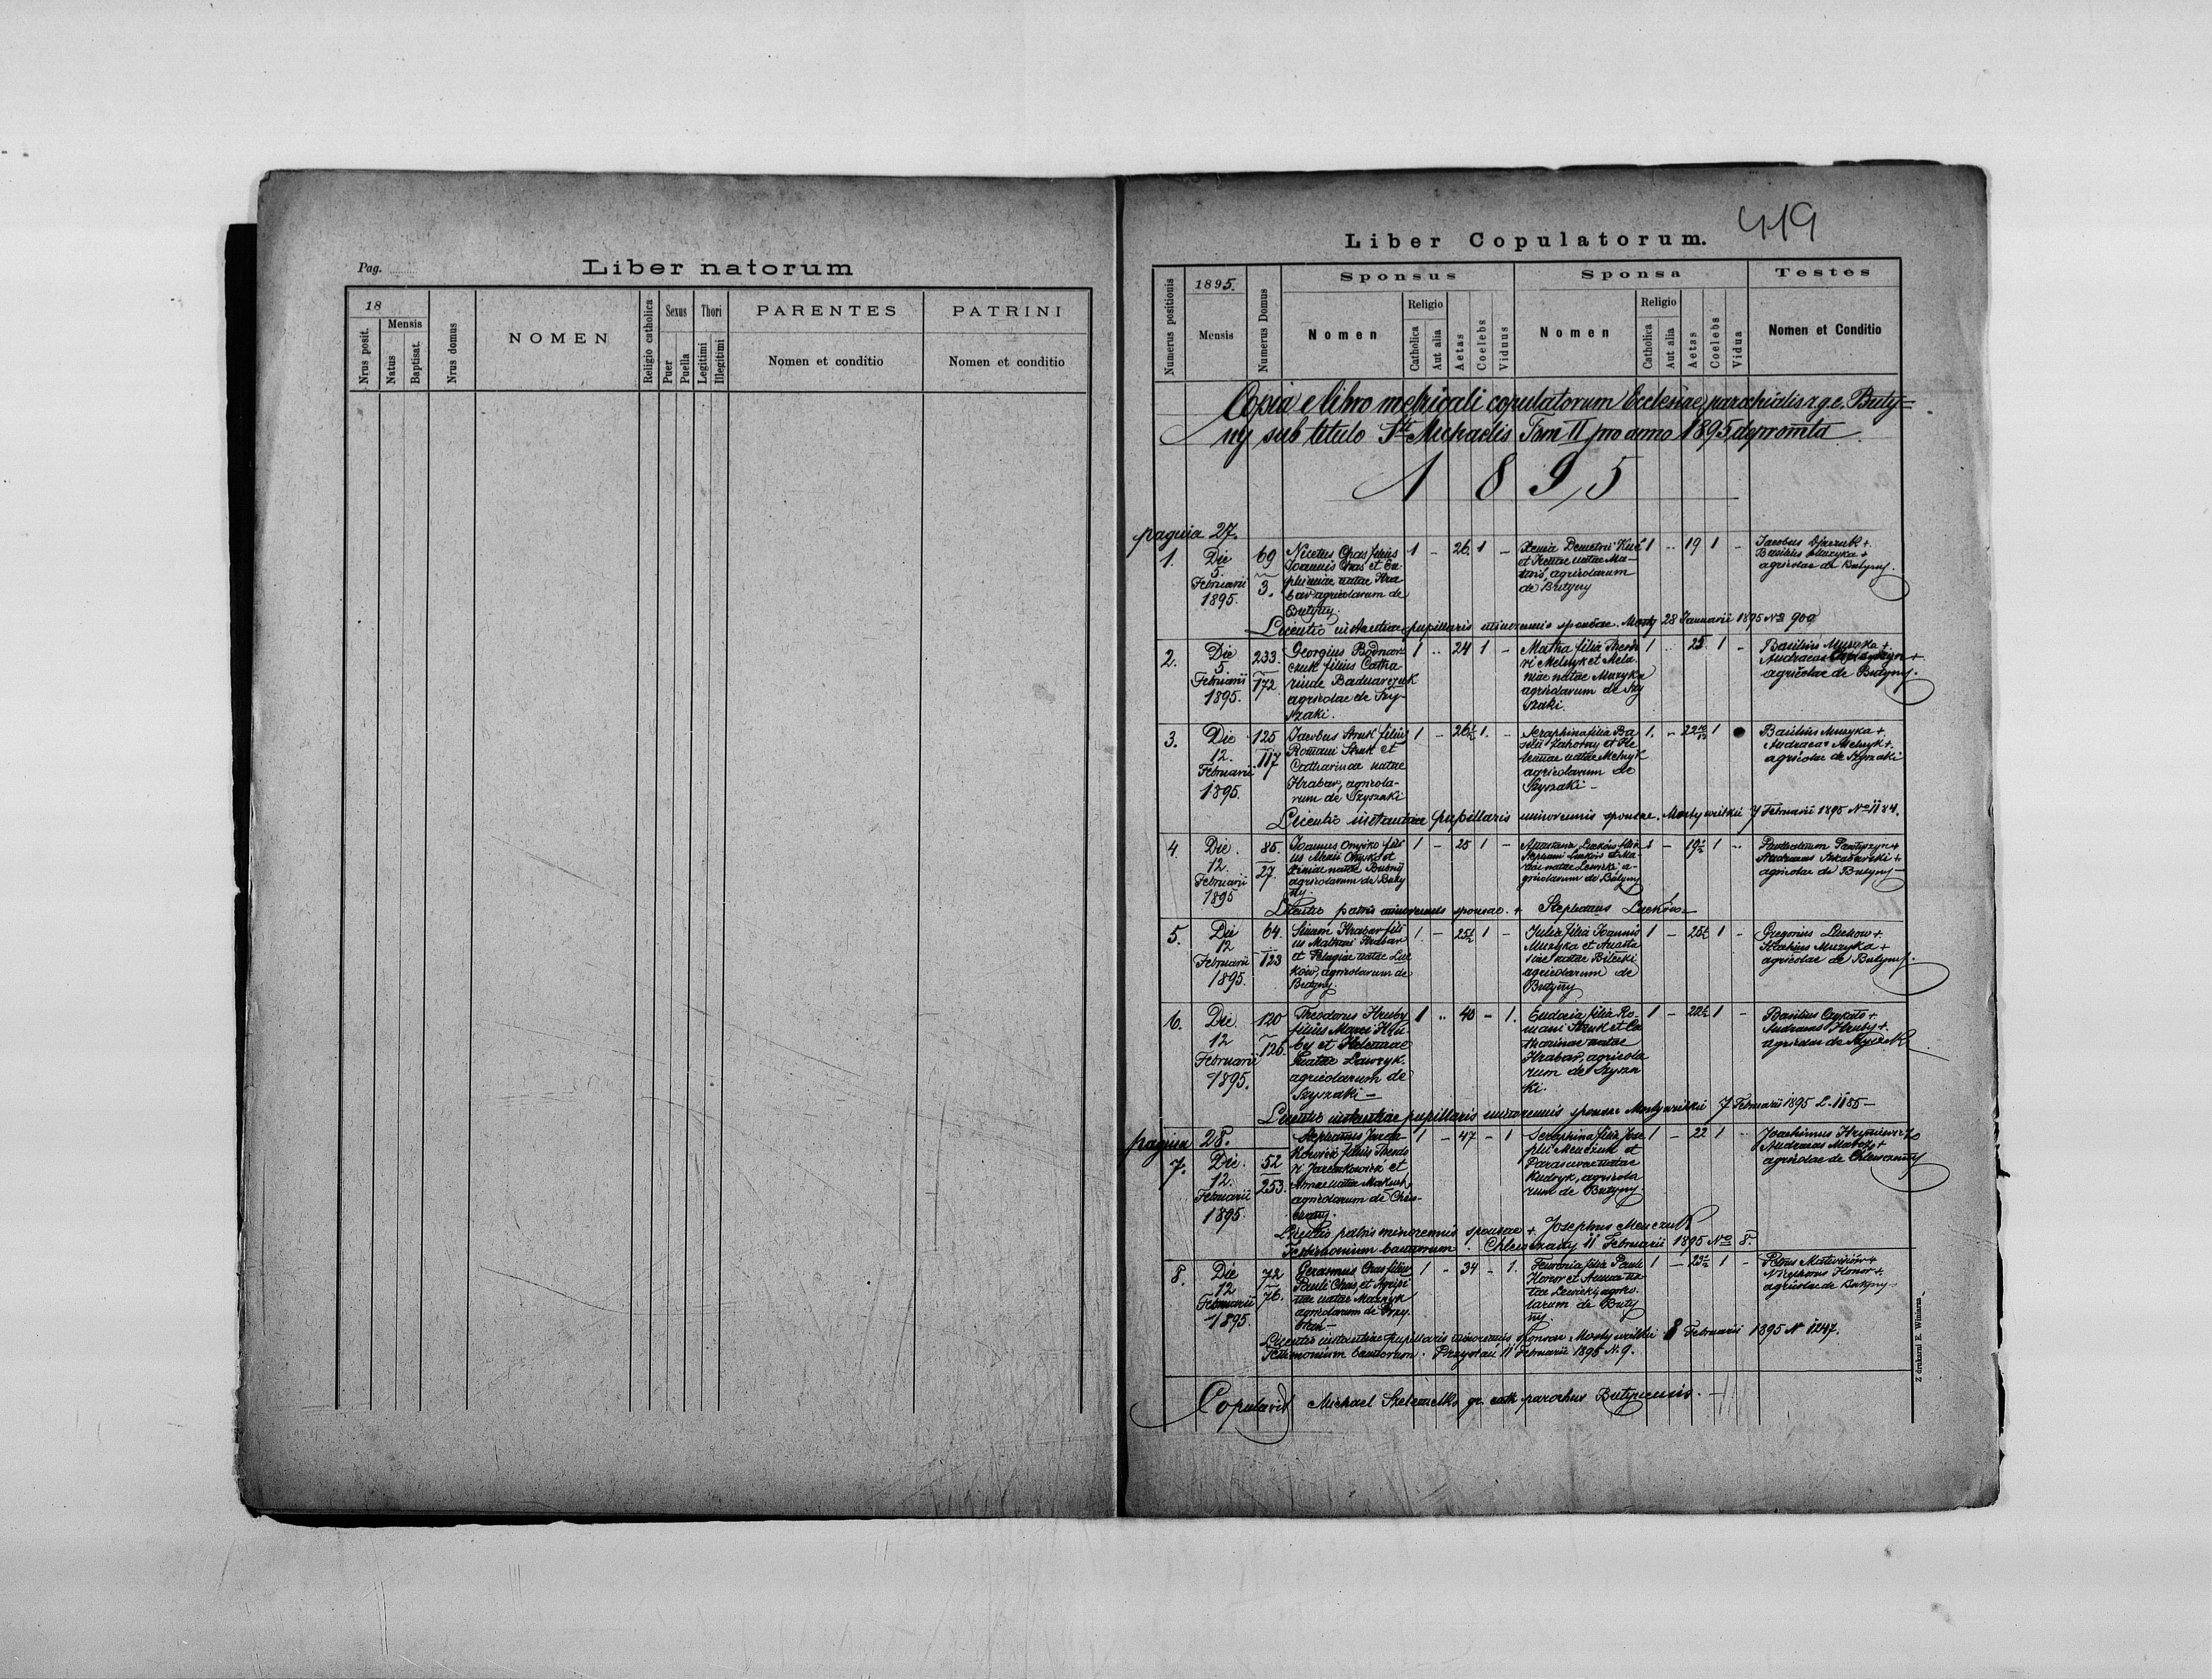 Pag.
Liber natorum
18
Mensis
Nrus posit.
Natus
Baptisat.
Nrus domus
NOMEN
Religio catholica
Sexus
Puer
Puella
Thori
Legitimi
Illegitimi
PARENTES
Nomen et conditio
PATRINI
Nomen et conditio
419
Liber Copulatorum.
Numerus positionis
1895.
Mensis
Numerus Domus
Sponsus
Nomen
Religio
Catholica
Aut alia
Aetas
Coelebs
Viduus
Sponsa
Nomen
Religio
Catholica
Aut alia
Aetas
Coelebs
Vidua
Testes
Nomen et Conditio
Copia e libro metricali copulatorum Ecclesiae parochialis r.g.c. Buty=
ny sub titulo Sti Michaelis Tom II pro anno 1895 depromta
1895
pagina 27.
1.
Die
5.
Februarii
1895.
69
3.
Nicetus Chas filius
Joannis Chas et Eu
phemiae natae Hra
bar agricolarum de
Butyny.
1 - 26 1 -
Xenia Demetrii Kuć
et natae Ma-
agricolarum
de Butyny
1 - 19 1 -
Jacobus +
Basilius Muzyka +
agricolae de Butyny.
Licentio instantiae pupillaris minorennis sponsae. Mosty 28 Januarii 1895 No 900
2.
Die
5.
Februarii
1895.
233.
172
Georgius Bodnar
czuk filius Catha
rinae Badnarczuk
agricolae de Szy-
szaki.
1 - 24 1 -
Martha filia Theodo
ri Melnyk et Mela
niae natae Muzyka
agricolarum de Szy
szaki.
1 - 25 1 -
Basilius Muzyka +
Andraeas +
agricolae de Butyny.
3.
Die
12.
Februarii
1895.
125
117
Jacobus Struk filius
Romani Struk et
Catharinae natae
Hrabar, agricola-
rum de Szyszaki
1 - 26½ 1. -
Seraphina filia Ba
silii Zahorny et He
lenae natae Melnyk
agricolarum de
Szyszaki -
1. - 22 1
Basilius Muzyka +
Andraeas Melnyk +
agricolae de Szyszaki
Licentio instantiae pupillaris minorennis sponsae. Mosty wielkie 7 Februarii 1895 No 1184.
4
Die
12.
Februarii
1895
85.
27.
Joannes Onyśko fili
us Onyśko et
Xeniae natae
agricolarum de Buty
ny.
1 - 25 1 -
Anastasia Luców filia
Stephani Luców et Ma-
riae natae Lewicki a-
gricolarum de Butyny
1 - 19½ 1 -
Pantyszyn +
Andraeas +
agricolae de Butyny
Licentio patris minorennis sponsae. + Stephanus Luców
5.
Die
12
Februarii
1895.
64.
123
Simeon Hrabar fili
us Mathaei Hrabar
et Pelagiae natae Luc
ków, agricolarum de
Butyny.
1 - 25½ 1 -
Julia filia Joannis
Muzyka et Anasta
siae natae Bilecki
agricolarum de
Butyny
1 - 25½ 1 -
Gregorius Luckow +
Muzyka +
agricolae de Butyny.
6.
Die
12
Februarii
1895.
120
126.
Theodorus Hruby
filius Marci Hru
by et Helenae
natae Lawryk.
agricolarum de
Szyszaki -
1 - 40 - 1.
Eudocia filia Ro-
mani Struk et Ca
tharinae natae
Hrabar, agricola
rum de Szysza
ki.
1 - 22½ 1 -
Basilius +
Andraeas Hruby +
agricolae de
Licentio instantiae pupillaris minorennis sponsae Mosty wielkie 7 Februarii 1895 L. 1185 -
pagina 28.
7.
Die.
12.
Februarii
1895.
52
253.
Stephanus
kowicz filius Theodo
ri et
Annae natae
agricolarum de Chlew-
czany.
1 - 47 - 1
Seraphina filia Jose
phi Menczuk et
Parascevae natae
Kudryk, agricola
rum de Butyny
1 - 22 1 -
Joachimus Hryniewicz +
Andraeas +
agricolae de Chlewczany
Licentio patris minorennis sponsae + Josephus Menczuk
Testimonium bannorum. Chlewczany 11 Februarii 1895 No 8.
8.
Die
12
Februarii
1895.
72
76.
Gerasimus Chas filius
Pauli Chas, et Agripi
nae natae Muzyk
agricolarum de Przy
stań -
1 - 34 - 1.
Fewronia filia Pauli
Honor et Annae na
tae Lewicki, agrico
larum de Buty
ny.
1 - 23½ 1 -
Petrus Matwiiów +
Nicephorus Honor +
agricolae de Butyny -
Licentio instantiae pupillaris minorennis sponsae Mosty wielkie 8 Februarii 1895 N 1247.
Testimonium bannorum. Przystań 11 Februarii 1895 N. 9.
Copulavit Michael gr. cath. parochus Butynensis.
Z drukarni E. Winiarza